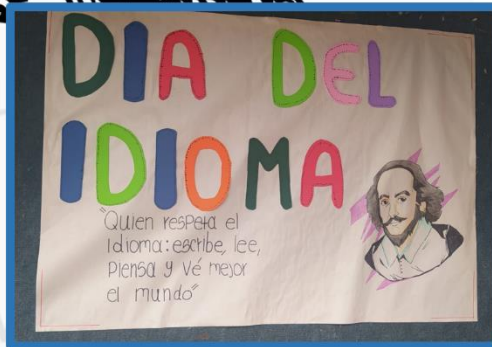 DIA DEL
IDIOMA
"Quien respeta el
Idioma: escribe, lee,
Piensa y Vé mejor
el mundo"